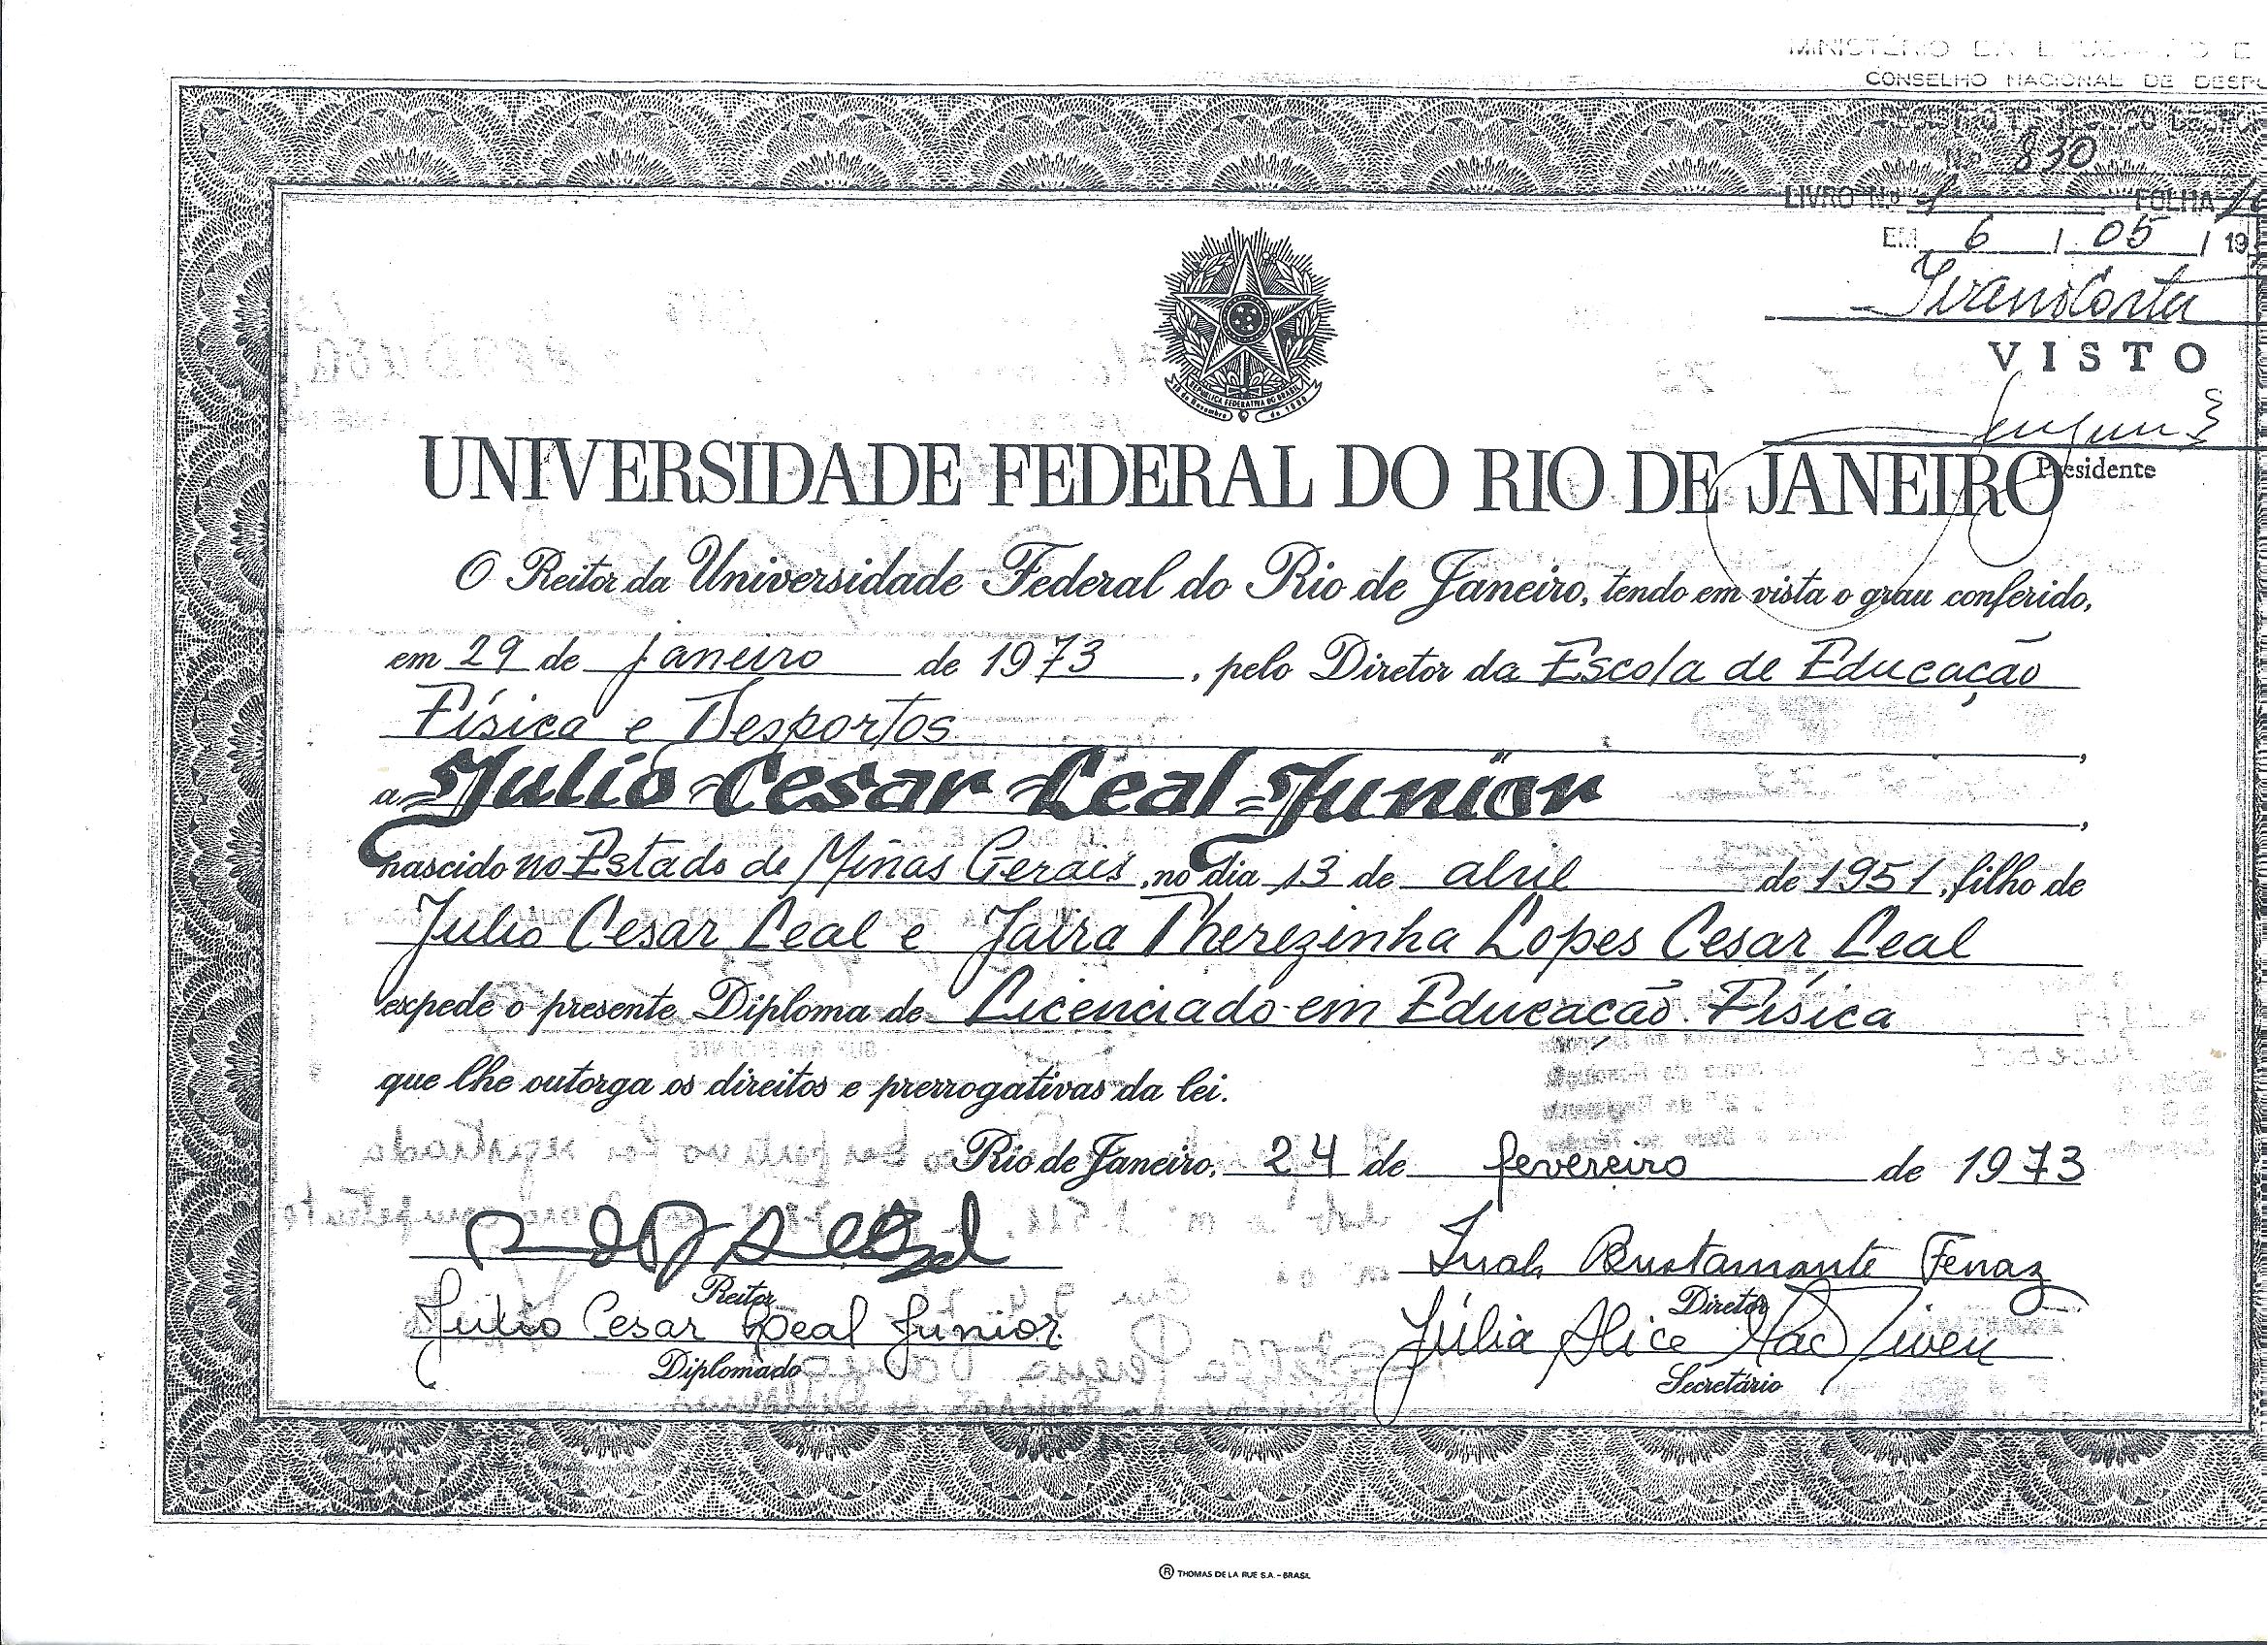 CONSELHO NACIONAL DE
Nº 830
LIVRO N.º 1 FOLHA
EM 6 / 05 / 19
Ivan Costa
VISTO
Presidente
REPUBLICA FEDERATIVA DO BRASIL
15 de Novembro de 1889
UNIVERSIDADE FEDERAL DO RIO DE JANEIRO
O Reitor da Universidade Federal do Rio de Janeiro, tendo em vista o grau conferido,
em 29 de janeiro de 1973, pelo Diretor da Escola de Educação
Física e Desportos,
a Julio Cesar Leal Junior,
nascido no Estado de Minas Gerais, no dia 13 de abril de 1951, filho de
Julio Cesar Leal e Jaira Therezinha Lopes Cesar Leal
expede o presente Diploma de Licenciado em Educação Física
que lhe outorga os direitos e prerrogativas da lei.
Rio de Janeiro, 24 de fevereiro de 1973
Bustamante
Reitor
Diretor
Julio Cesar Leal Junior
Júlia Alice
Diplomado
Secretário
® THOMAS DE LA RUE S.A. - BRASIL